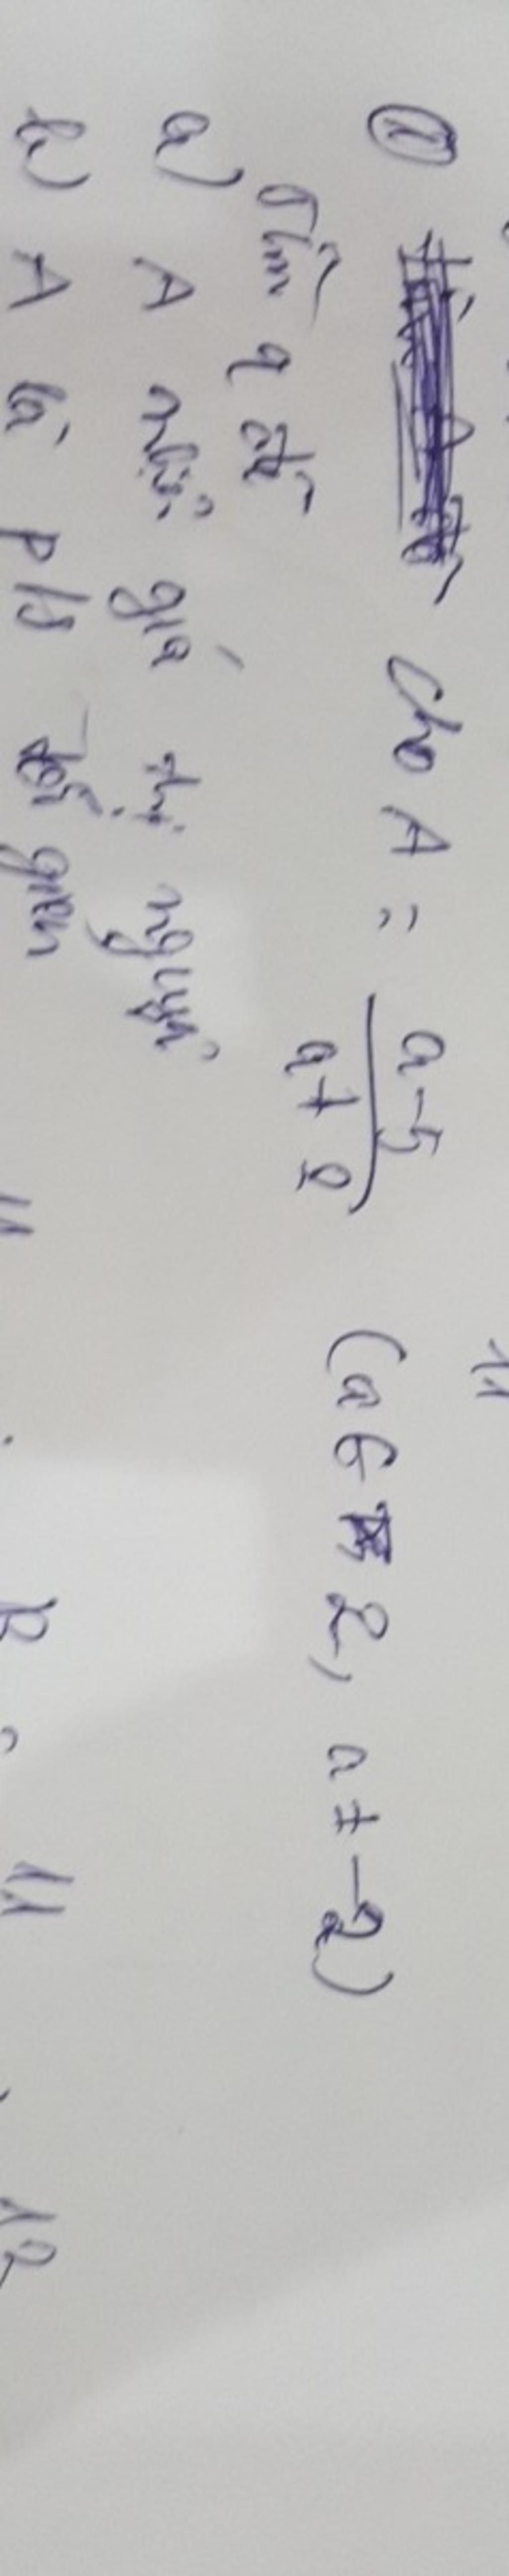 ① Cho A = \frac{a-5}{a+2} (a ∈ Z, a ≠ -2)
Tìm a để
a) A nhận giá trị nguyên
b) A là p/s tối giản